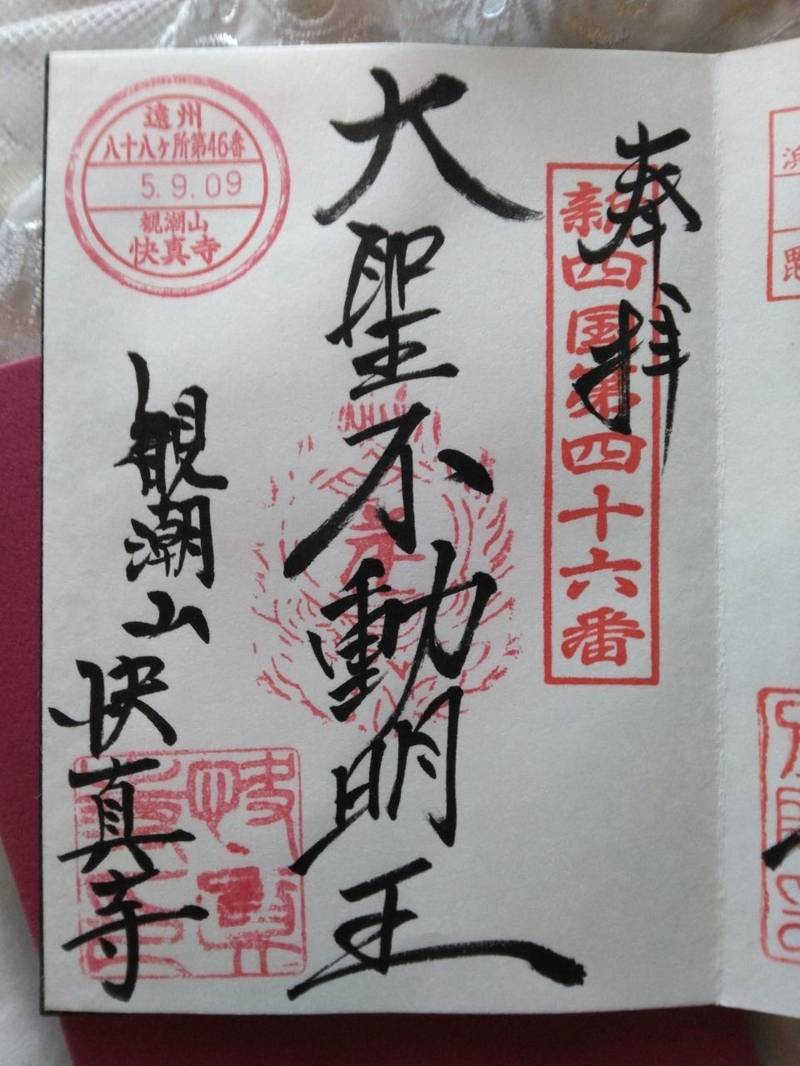 奉拝
新四国第四十六番
大聖不動明王
遠州
八十八ヶ所第46番
5.9.09
観潮山
快真寺
観潮山
快真寺